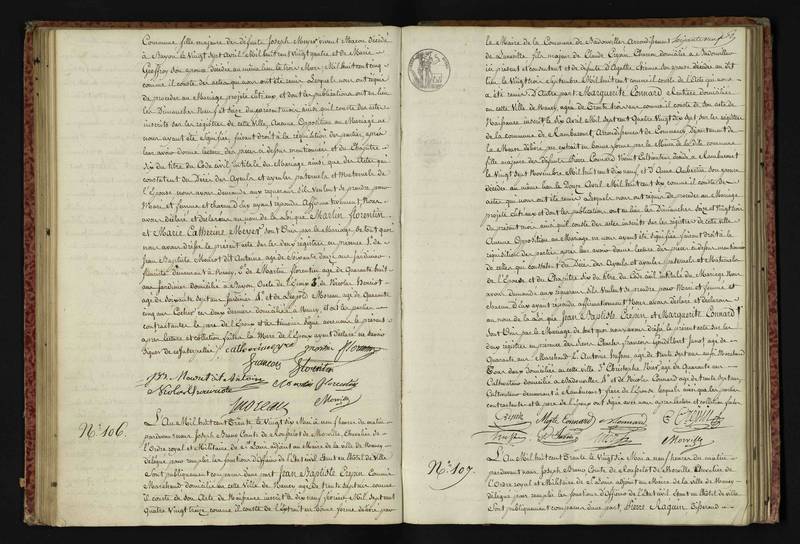 Commune fille majeure des défunts Joseph Meyer vivant Macon décédé
à Bayon le Vingt sept Avril Mil huit cent Vingt quatre et de Marie
Geoffroy son épouse décédée au même lieu le trois Mars Mil huit cent cinq
comme il conste des actes qui nous ont été remis Lesquels nous ont requis
de procéder au Mariage projeté entr'eux et dont les publications ont eu lieu
les Dimanches Neuf et Seize du présent mois ainsi qu'il conste des actes
inscrits sur les registres de cette Ville, Aucune Opposition au Mariage ne
nous ayant été signifiée, faisant droit à la réquisition des parties après
leur avoir donné lecture des pièces ci-dessus mentionnées et du Chapitre
Six du titre du Code civil intitulé du Mariage ainsi que des Actes qui
constatent les Décès des Ayeuls et ayeules paternels et Maternels de
l'Epouse nous avons demandé aux époux s'ils Veulent se prendre pour
Mari et femme et chacun d'eux ayant répondu Affirmativement, Nous
avons déclaré et déclarons au nom de la loi que Martin Florentin
et Marie Catherine Meyer sont Unis par le Mariage. De tout quoi
nous avons dressé le présent acte sur les deux registres en présence 1° de
Jean Baptiste Mounot dit Antoine agé de Soixante deux ans Jardinier
fleuriste demeurant à Nancy, 2° de Martin Florentin agé de Quarante huit
ans Jardinier domicilié à Bayon Oncle de l'Epoux 3° de Nicolas Henriot
agé de Soixante sept ans Jardinier 4° et de Léopold Moreau agé de Quarante
cinq ans Cocher ces deux derniers domiciliés à Nancy, et ont les parties
contractantes le père de l'Epoux et les témoins Signé avec nous le présent
après lecture et collation faites. La Mère de l'Epoux ayant déclaré ne savoir
Signer de ce interpellée.
Catherine Meyer Martin Florentin
François Florentin
Jean Mounot dit Antoine
Nicolas Henriot Martin Florentin
Moreau Morville
N°. 106.
L'An Mil huit cent Trente le Vingt Six Mai à neuf heures du matin
pardevant nous Joseph Bruno Comte de Morville, Chevalier de
l'Ordre royal et Militaire de St Louis adjoint au Maire de la Ville de Nancy
délégué pour remplir les fonctions d'officier de l'état civil étant en l'hôtel de Ville
Sont publiquement comparus d'une part Jean Baptiste Cezan Commis
Marchand domicilié en cette Ville de Nancy agé de trente sept ans comme
il conste de son Acte de Naissance inscrit le dix neuf février Mil sept cent
Quatre Vingt treize comme il conste de l'Extrait en bonne forme délivré par
le Maire de la Commune de Badonviller Arrondissement
de Lunéville fils majeur de Claude Cezan Charron domicilié à Badonviller
ici présent et consentant et de défunte Agathe son épouse décédée au dit
lieu le Vingt trois Septembre Mil huit cent comme il conste de l'Acte qui nous
a été remis. D'autre part Marguerite Connard Rentière domiciliée
en cette Ville de Nancy agée de Trente trois ans comme il conste de son acte de
Naissance inscrit le dix Avril Mil sept cent Quatre Vingt dix sept sur les registres
de la commune de Rambucourt, Arrondissement de Commercy département de
la Meuse délivré par extrait en bonne forme par le Maire de la dite commune
fille majeure des défunts Pierre Connard Vivant Cultivateur décédé à Rambucourt
le Vingt sept Novembre Mil huit cent dix neuf et d'Anne Aubertin son épouse
décédée au même lieu le Douze Avril Mil huit cent dix comme il conste des
actes qui nous ont été remis Lesquels nous ont requis de procéder au Mariage
projeté entr'eux et dont les publications ont eu lieu les Dimanches Seize et Vingt trois
du présent mois ainsi qu'il conste des actes inscrits sur les registres de cette Ville
Aucune Opposition au Mariage ne nous ayant été signifiée faisant droit à la
réquisition des parties après leur avoir donné lecture des pièces ci-dessus mentionnées
de celles qui constatent les Décès des Ayeuls et ayeules paternels et Maternels
de l'Epouse et du Chapitre Six du titre du Code civil intitulé du Mariage Nous
avons demandé aux époux s'ils Veulent se prendre pour Mari et femme et
chacun d'eux ayant répondu affirmativement Nous avons déclaré et déclarons
au nom de la loi que Jean Baptiste Cezan et Marguerite Connard
sont Unis par le Mariage de tout quoi nous avons dressé le présent acte sur les
deux registres en présence des Sieurs Charles François agé de
Quarante ans Marchand 2° Antoine agé de trente sept ans aussi Marchand
Tous deux domiciliés en cette Ville 3° Christophe agé de Quarante ans
Cultivateur domicilié à Badonviller 4° et de Nicolas Connard agé de trente sept ans
Cultivateur demeurant à Rambucourt, frère de l'Epouse lesquels ainsi que les parties
contractantes et le père de l'Epoux ont signé avec nous après lecture et collation faites.
Cezan Mgte Connard N Connard Cezan
Morville
N°. 107.
L'An Mil huit cent Trente le Vingt Six Mai à neuf heures du matin
pardevant nous Joseph Bruno Comte de Morville Chevalier de
l'Ordre royal et Militaire de St Louis adjoint au Maire de la Ville de Nancy
délégué pour remplir les fonctions d'officier de l'état civil étant en l'hôtel de Ville
Sont publiquement comparus d'une part, Pierre Raguin